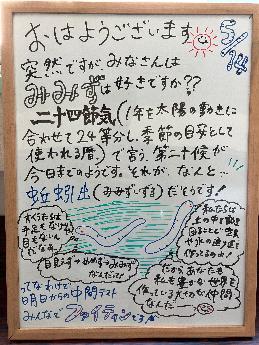 おはようございます
5/14
突然ですが、みなさんは
みみずは好きですか??
二十四節気(1年を太陽の動きに
合わせて24等分し、季節の目安として
使われる暦。)で言う、第二十候が
今日までのようです。それが、なんと…
蚯蚓出(みみずいずる)だそうです!
ぼくたちは
手足もなければ
目もないん
だなぁ。
目見えず→めみず→みみず
なんだって!
私たちは
土の中を動き
回ることで空気
や水の通り道を
作ってるのよ!
だから、あなたも
私も豊かな世界を
作っている大切な仲間
なんだ
ってなわけで
明日からの中間テスト
みんなでファイティンです!